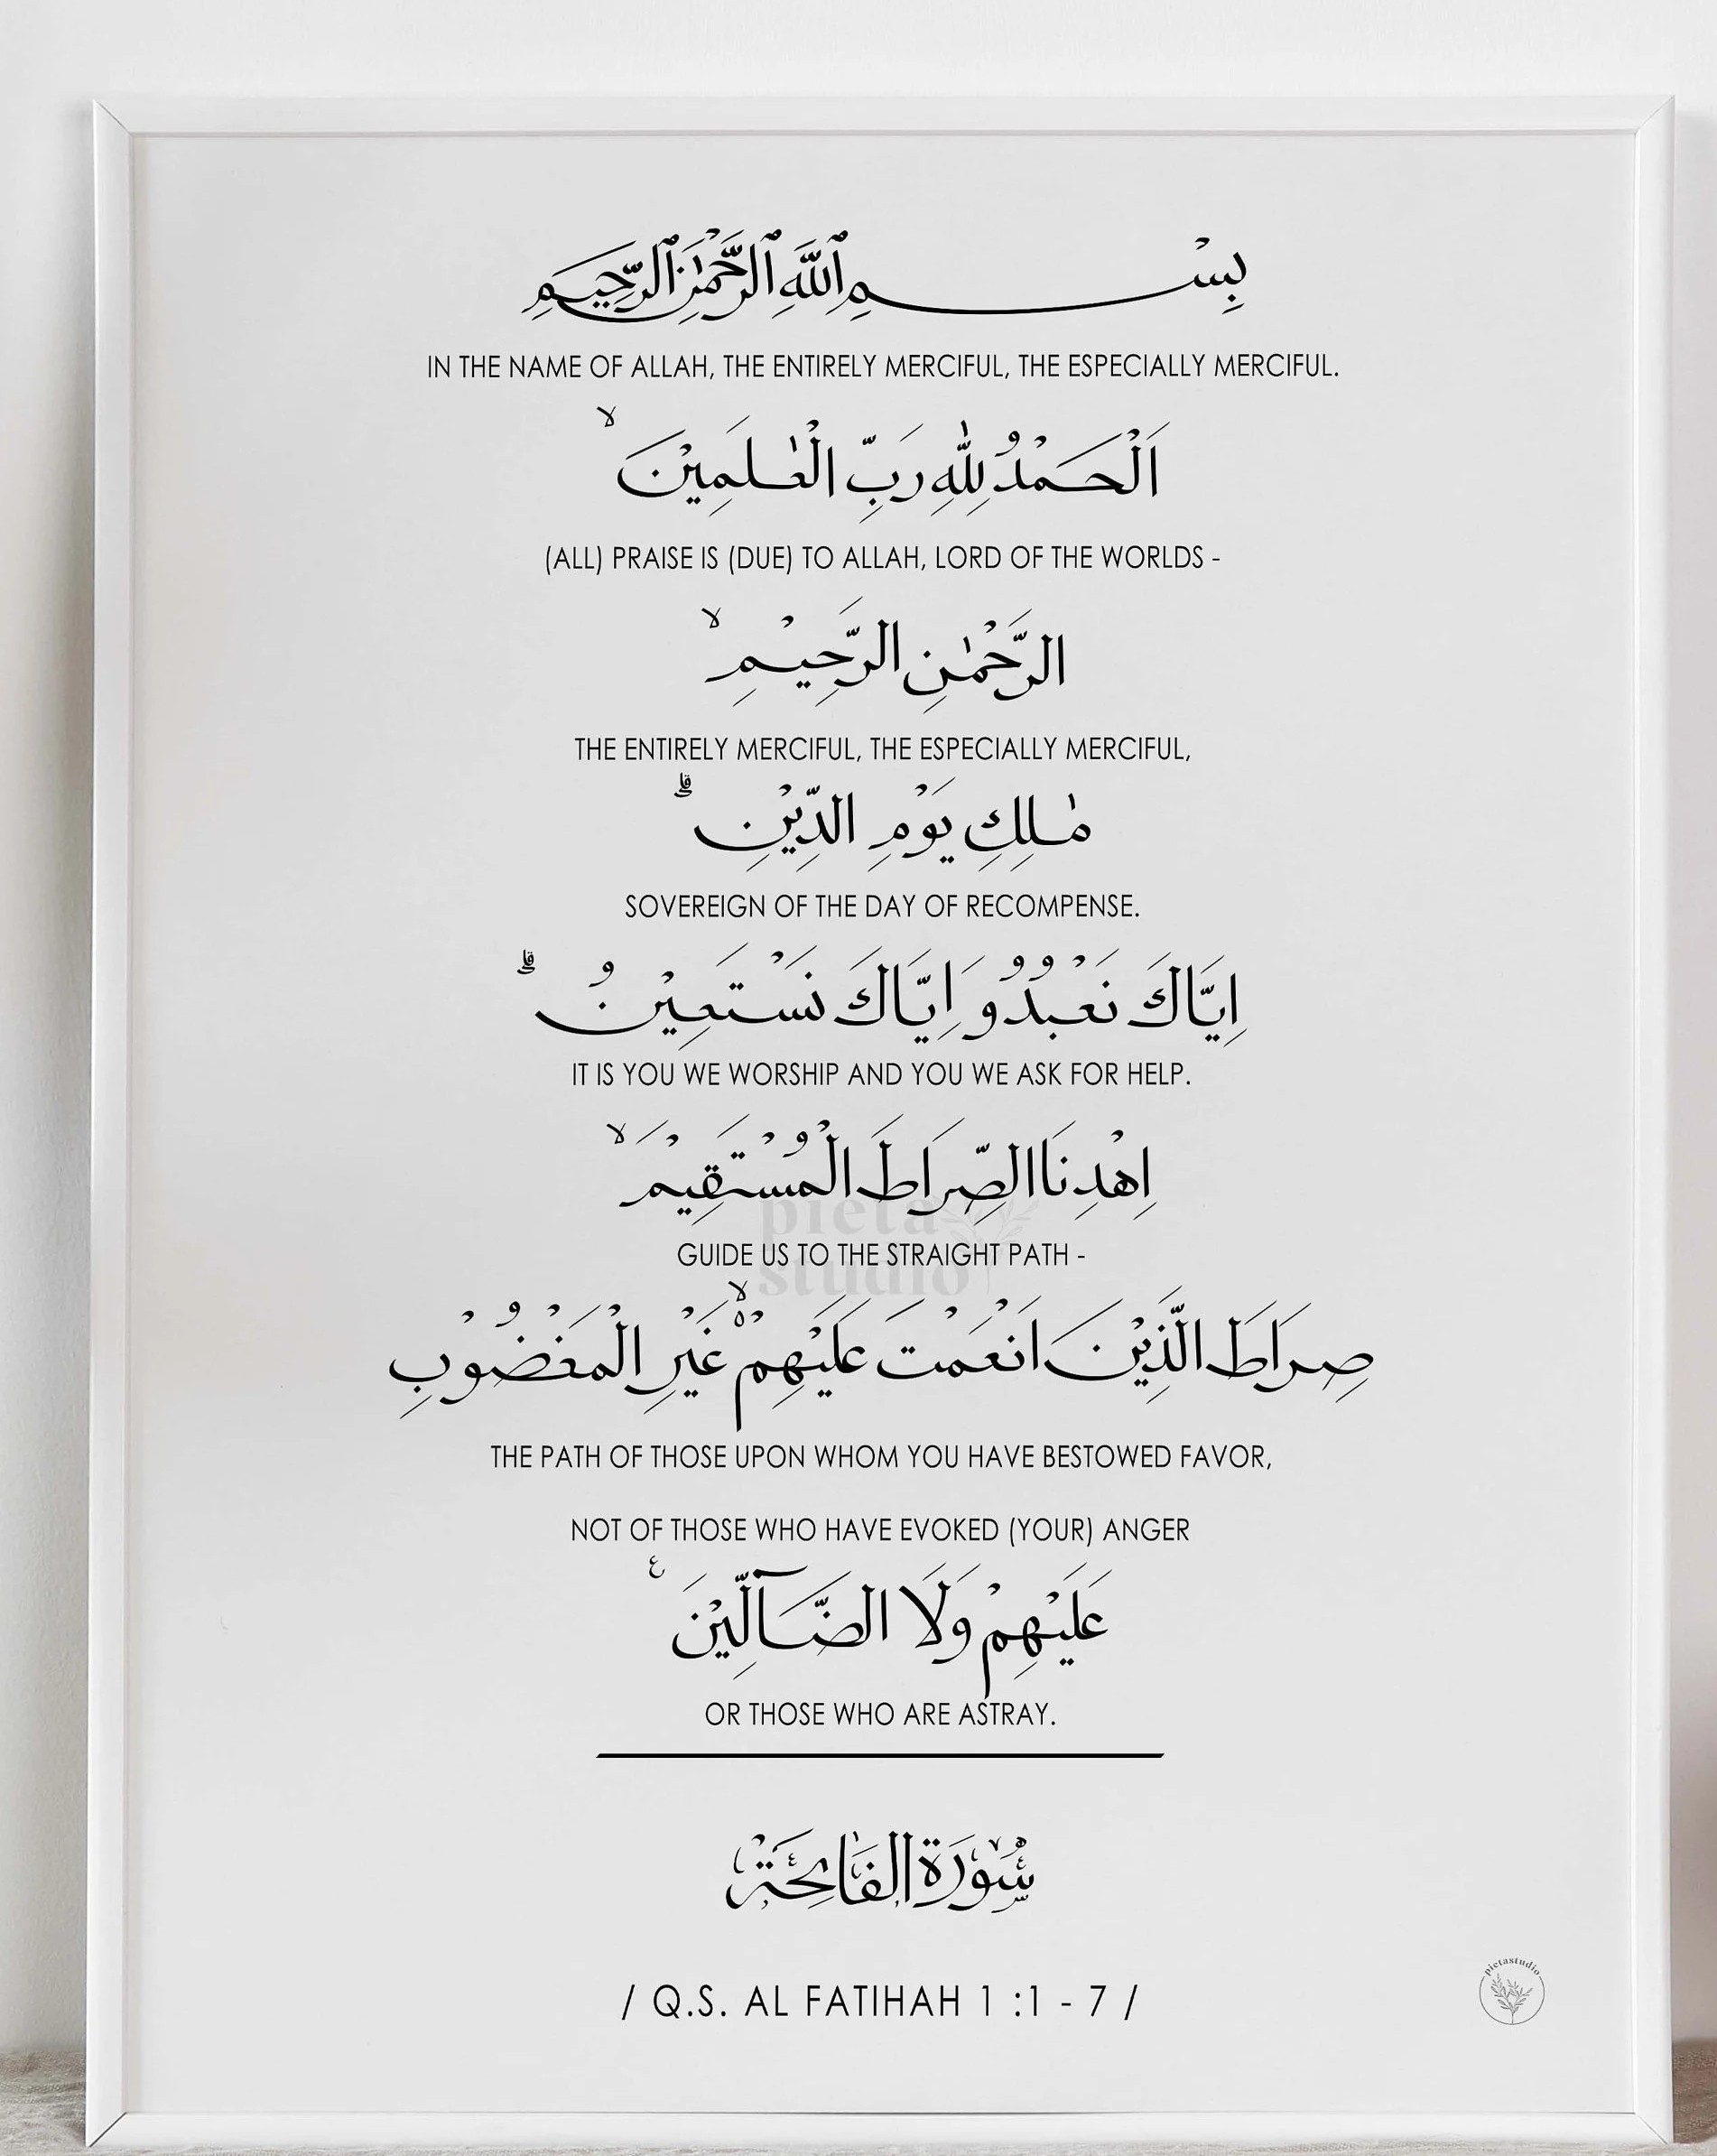 بِسْمِ ٱللَّهِ ٱلرَّحْمَٰنِ ٱلرَّحِيمِ
IN THE NAME OF ALLAH, THE ENTIRELY MERCIFUL, THE ESPECIALLY MERCIFUL.
اَلْحَمْدُ لِلّٰهِ رَبِّ الْعٰلَمِيْنَۙ
(ALL) PRAISE IS (DUE) TO ALLAH, LORD OF THE WORLDS -
الرَّحْمٰنِ الرَّحِيْمِۙ
THE ENTIRELY MERCIFUL, THE ESPECIALLY MERCIFUL,
مٰلِكِ يَوْمِ الدِّيْنِۗ
SOVEREIGN OF THE DAY OF RECOMPENSE.
اِيَّاكَ نَعْبُدُ وَاِيَّاكَ نَسْتَعِيْنُۗ
IT IS YOU WE WORSHIP AND YOU WE ASK FOR HELP.
اِهْدِنَا الصِّرَاطَ الْمُسْتَقِيْمَۙ
pieta
GUIDE US TO THE STRAIGHT PATH -
studio
صِرَاطَ الَّذِيْنَ اَنْعَمْتَ عَلَيْهِمْ ەۙ غَيْرِ الْمَغْضُوْبِ
THE PATH OF THOSE UPON WHOM YOU HAVE BESTOWED FAVOR,
NOT OF THOSE WHO HAVE EVOKED (YOUR) ANGER
عَلَيْهِمْ وَلَا الضَّاۤلِّيْنَ ࣖ
OR THOSE WHO ARE ASTRAY.
سُورَةُ الفَاتِحَةِ
/ Q.S. AL FATIHAH 1 :1 - 7 /
pietastudio